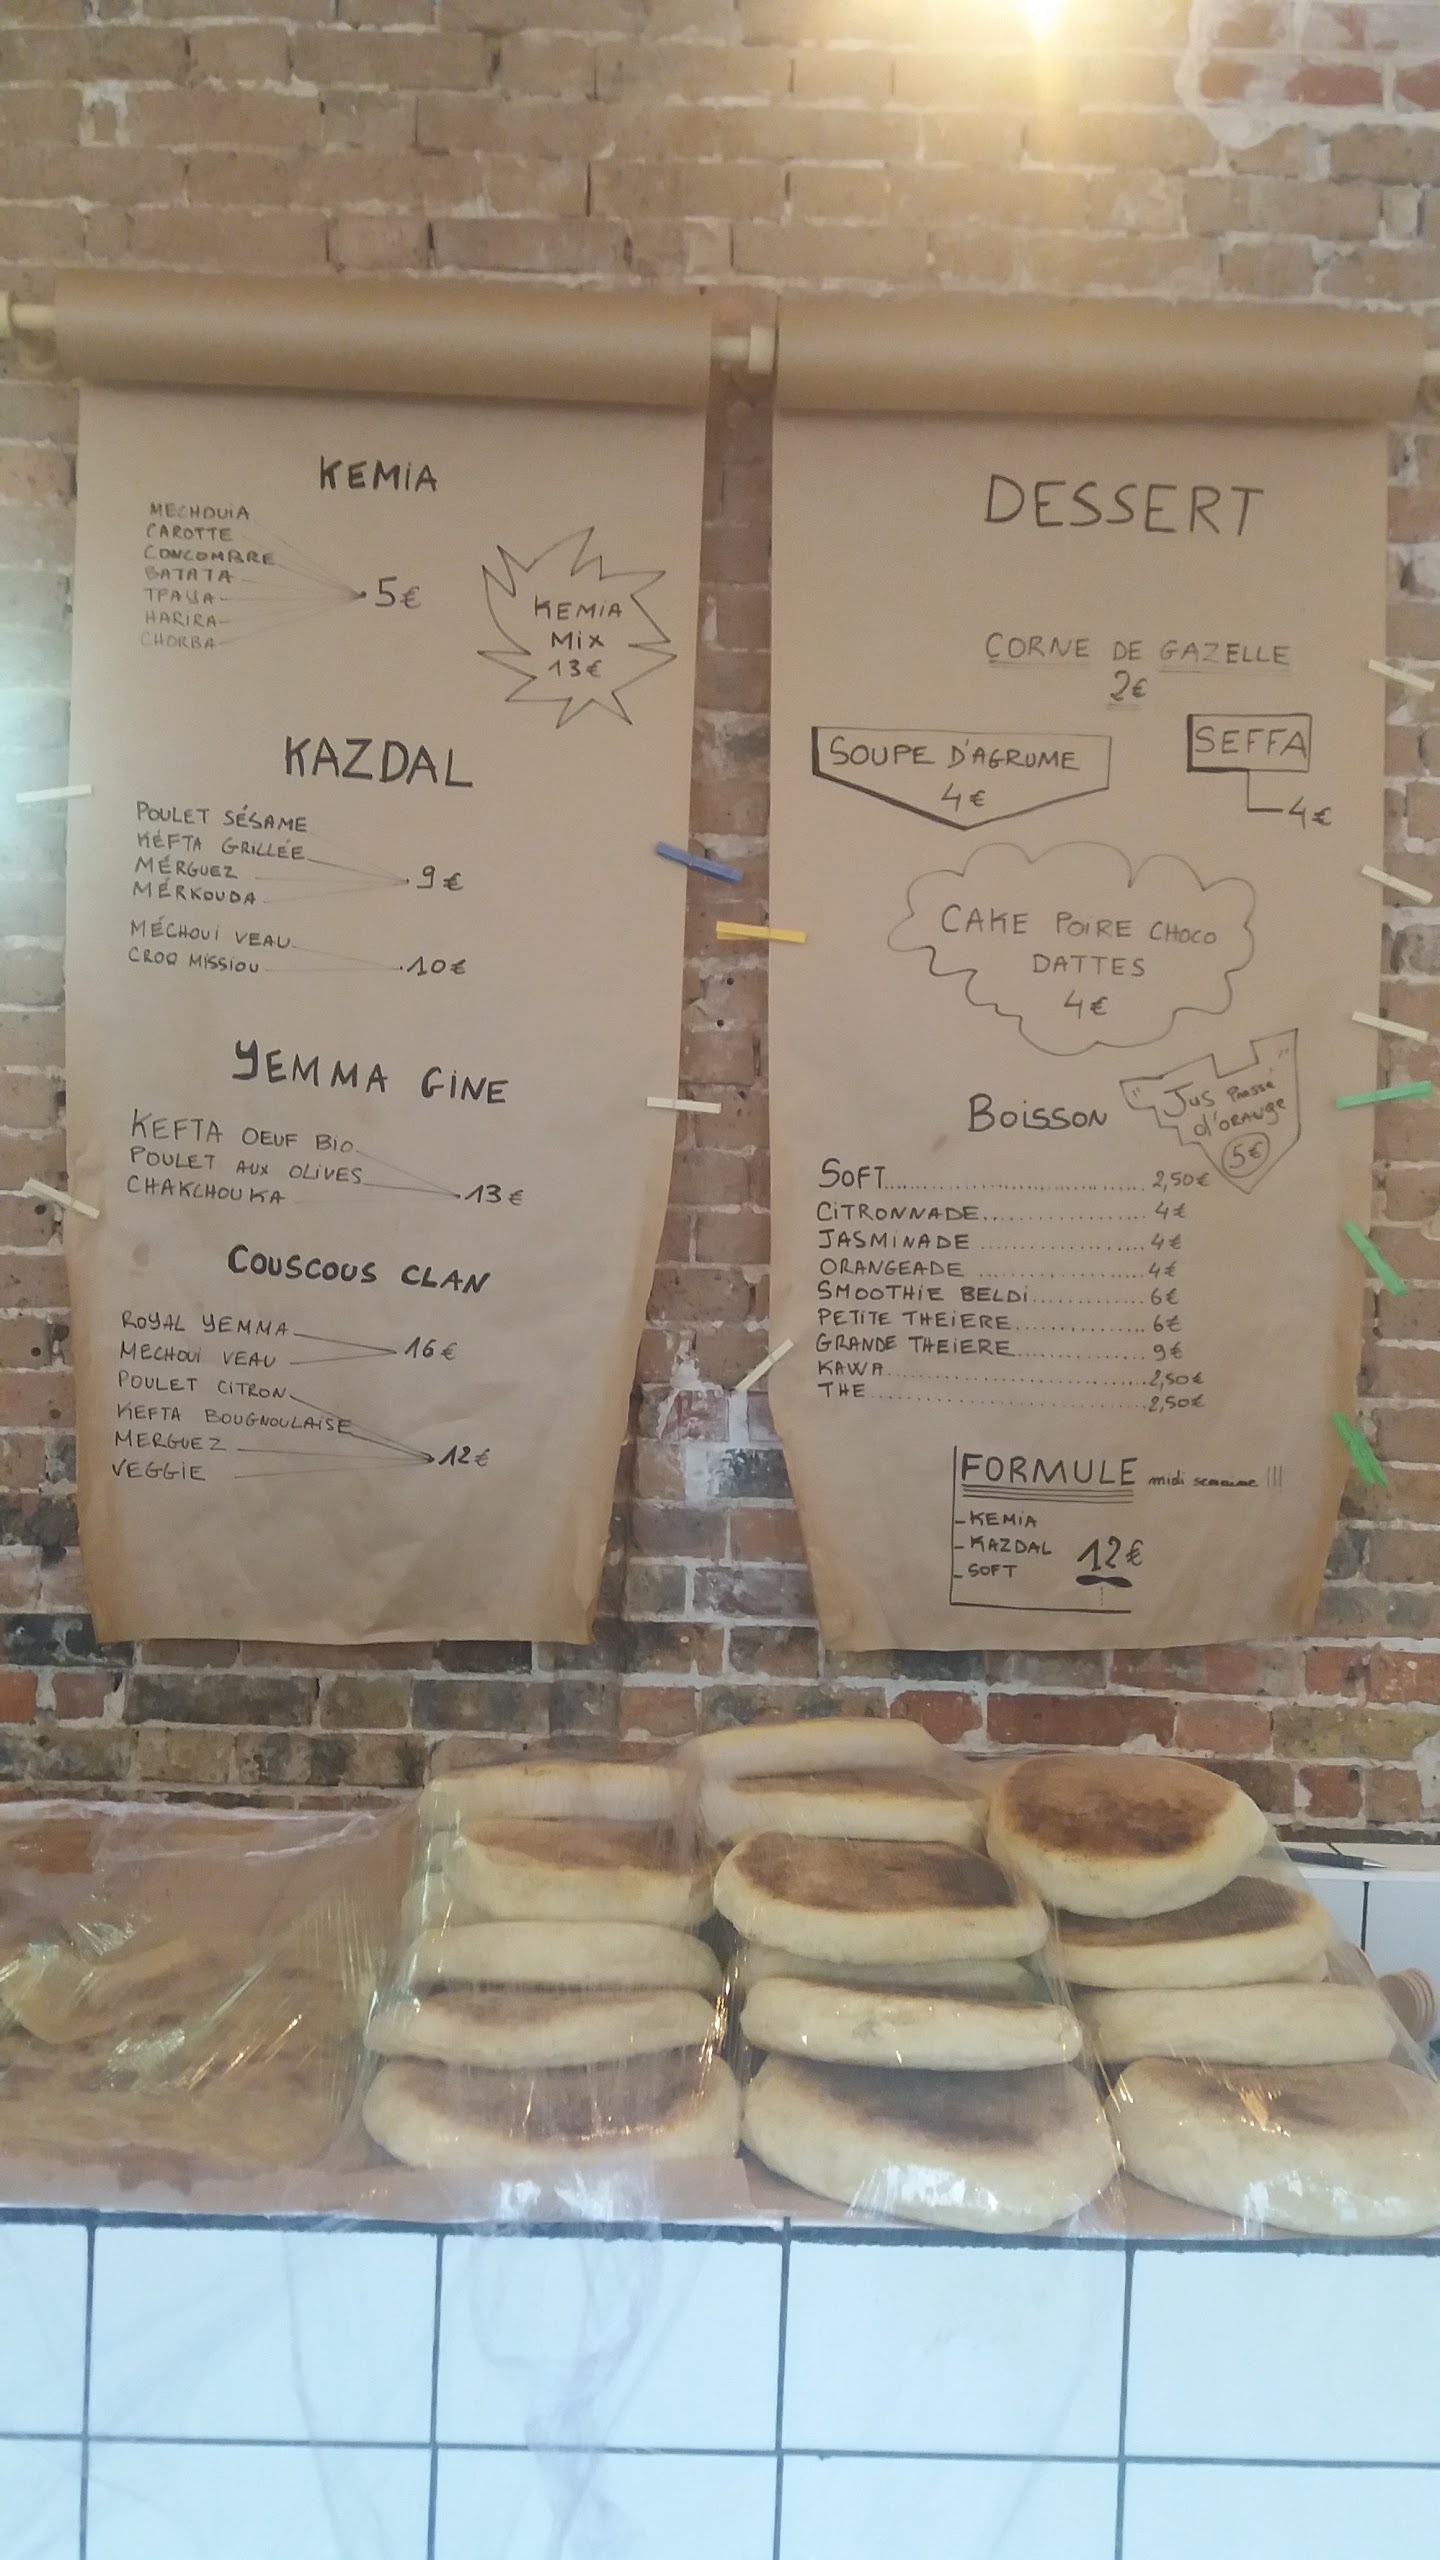 KEMIA
MECHOUIA
CAROTTE
CONCOMBRE
BATATA
HARIRA
CHORBA
5€
KEMIA
MIX
13€
KAZDAL
POULET SÉSAME
KÉFTA GRILLÉE
MÉRGUEZ
MÉRKOUDA
9€
MÉCHOUI VEAU
CROQ MISSIOU
10€
YEMMA GINE
KEFTA OEUF BIO
POULET AUX OLIVES
CHAKCHOUKA
13€
COUSCOUS CLAN
ROYAL YEMMA
MECHOUI VEAU
16€
POULET CITRON
KEFTA BOUGNOULAISE
MERGUEZ
VEGGIE
12€
DESSERT
CORNE DE GAZELLE
2€
SOUPE D'AGRUME
4€
SEFFA
4€
CAKE POIRE CHOCO
DATTES
4€
BOISSON
JUS Pressé
d'ORANGE
5€
SOFT....................................2,50€
CITRONNADE....................4€
JASMINADE....................4€
ORANGEADE....................4€
SMOOTHIE BELDI..............6€
PETITE THEIERE..............6€
GRANDE THEIERE..............9€
KAWA..............................2,50€
THE..............................2,50€
FORMULE midi semaine !!!
-KEMIA
-KAZDAL
-SOFT
12€